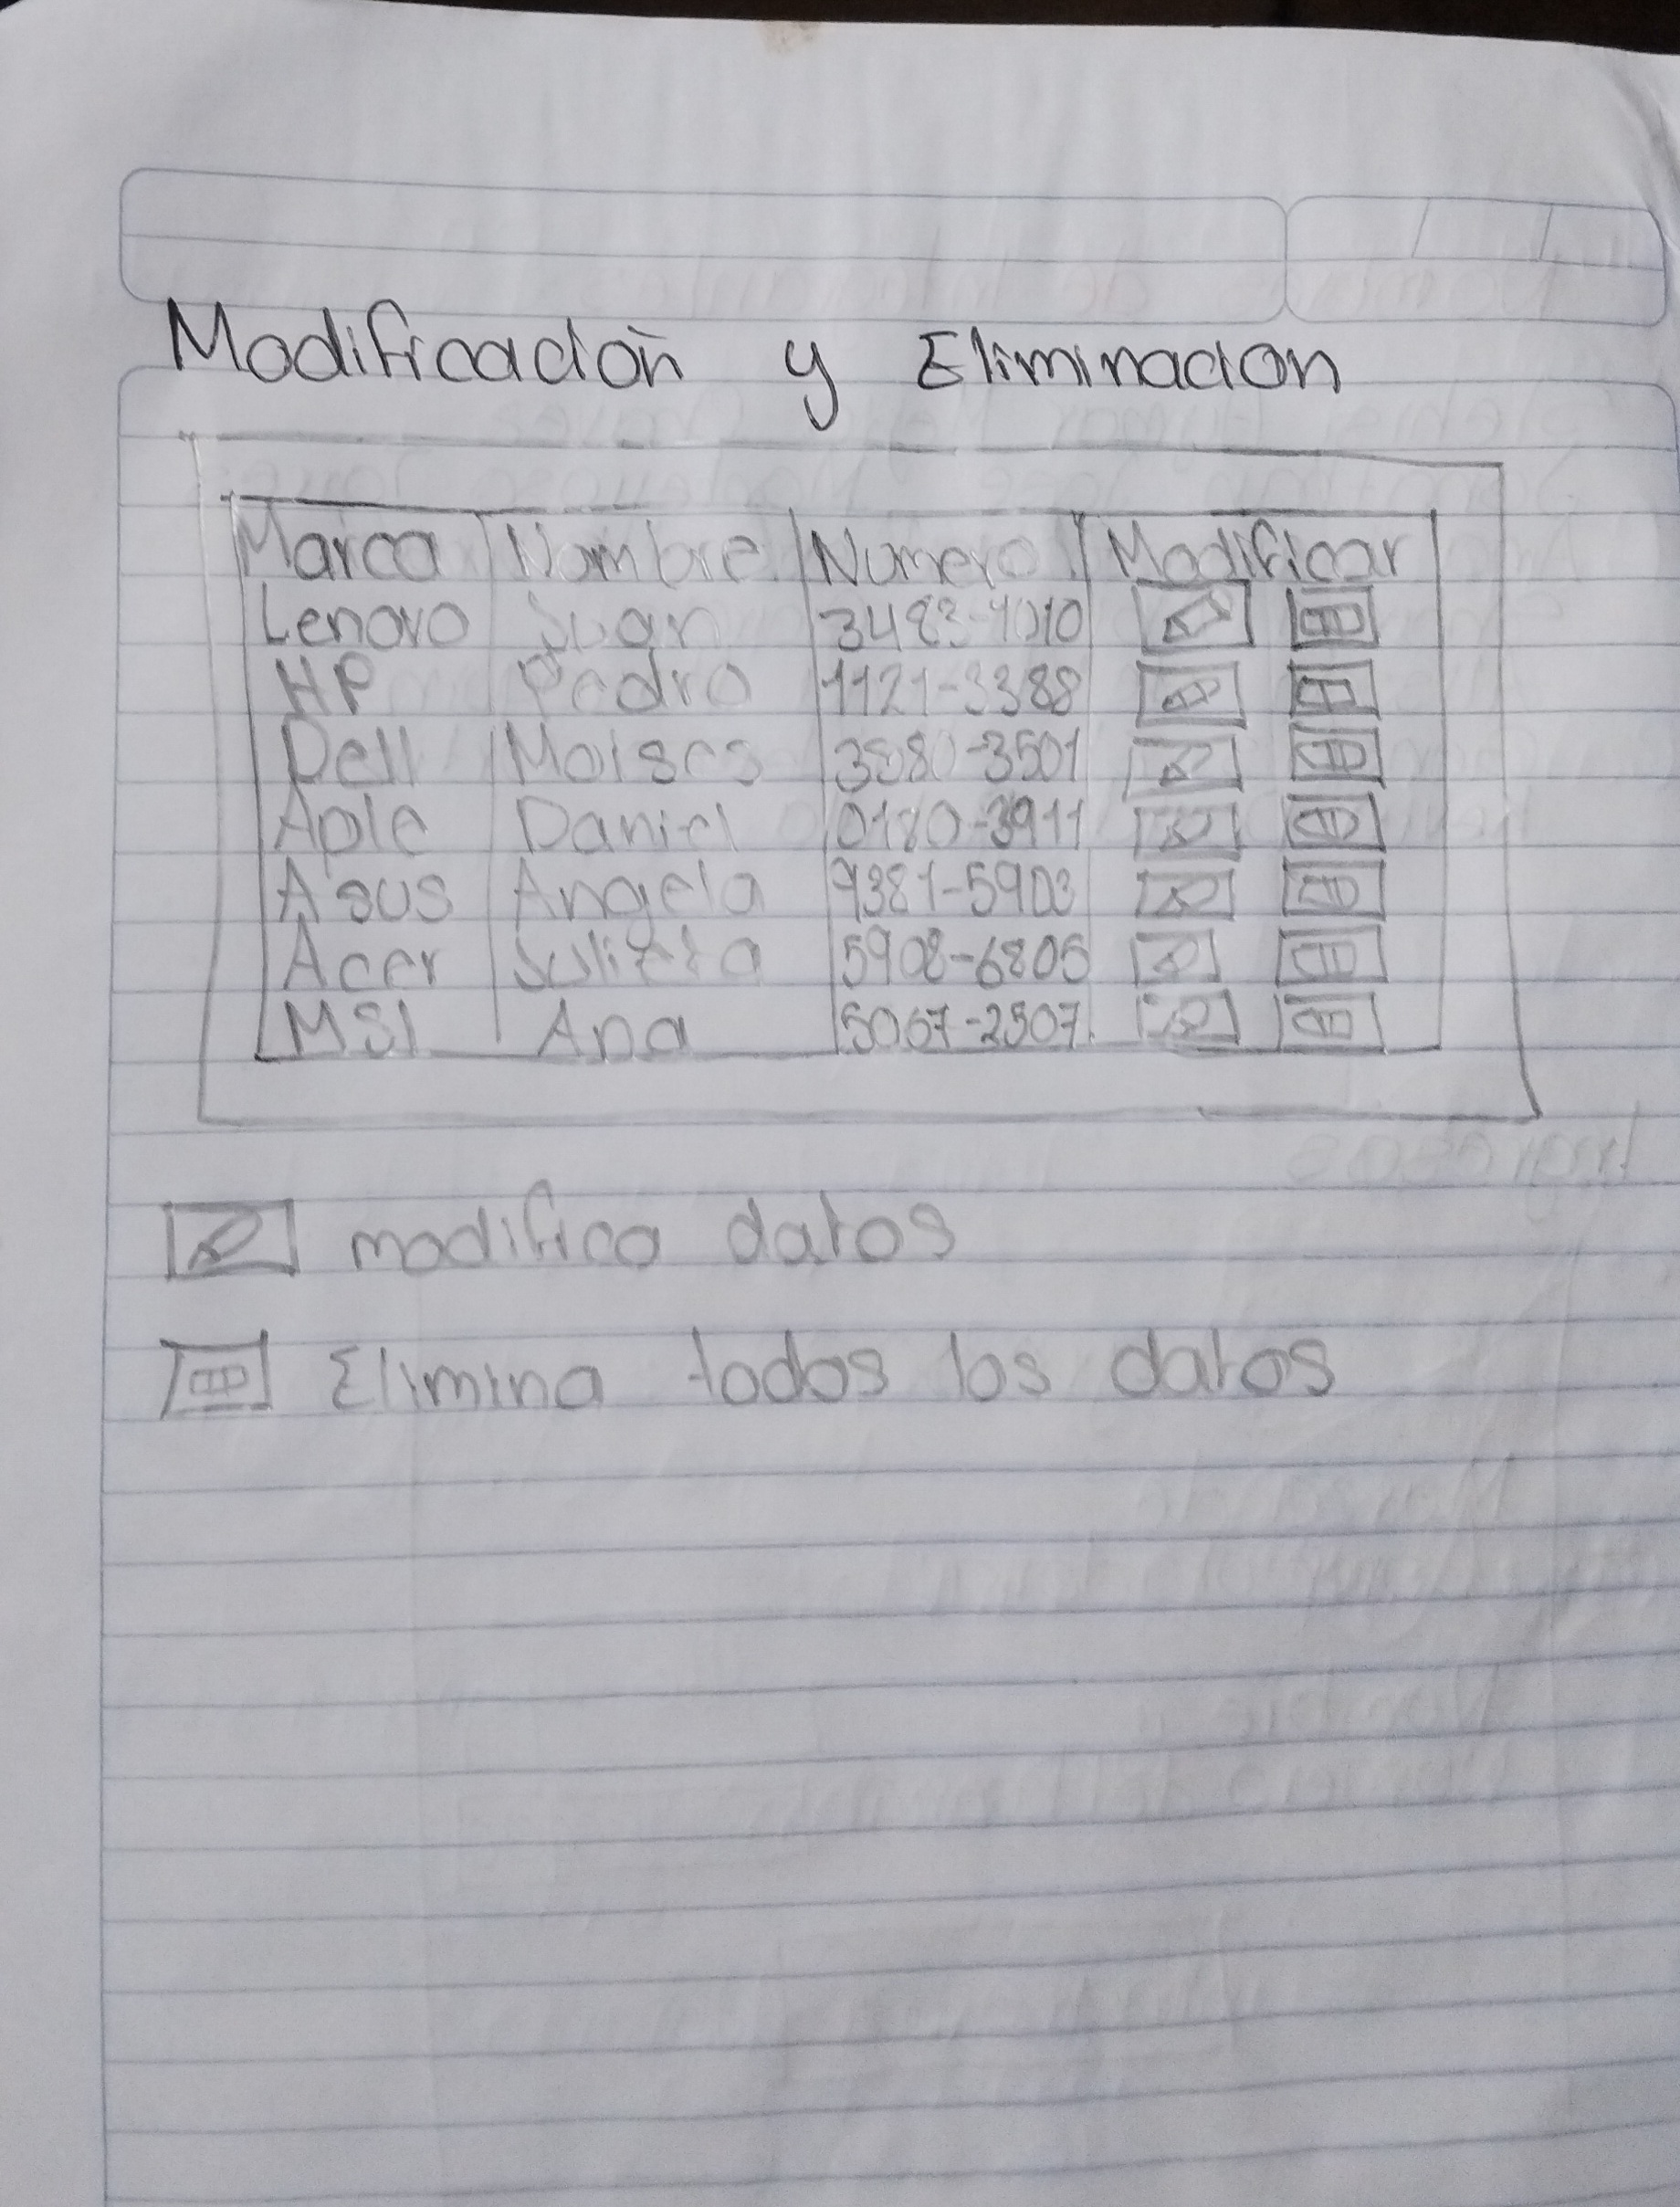 Modificaciòn y Eliminacion
Marca Nombre Numero Modificar
Lenovo Juan 3483-1010
HP Pedro 1121-3388
Dell Moises 3880-3501
Aple Daniel 0180-3911
Asus Angela 9381-5903
Acer Julieta 5908-6805
MSI Ana 5067-2507
modifica datos
Elimina todos los datos